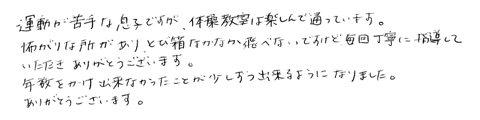 運動が苦手な息子ですが、体操教室は楽しんで通っています。
怖がりな所があり、とび箱なかなか飛べないですけど毎回丁寧に指導して
いただき ありがとうございます。
年数をかけ出来なかったことが少しずつ出来るようになりました。
ありがとうございます。